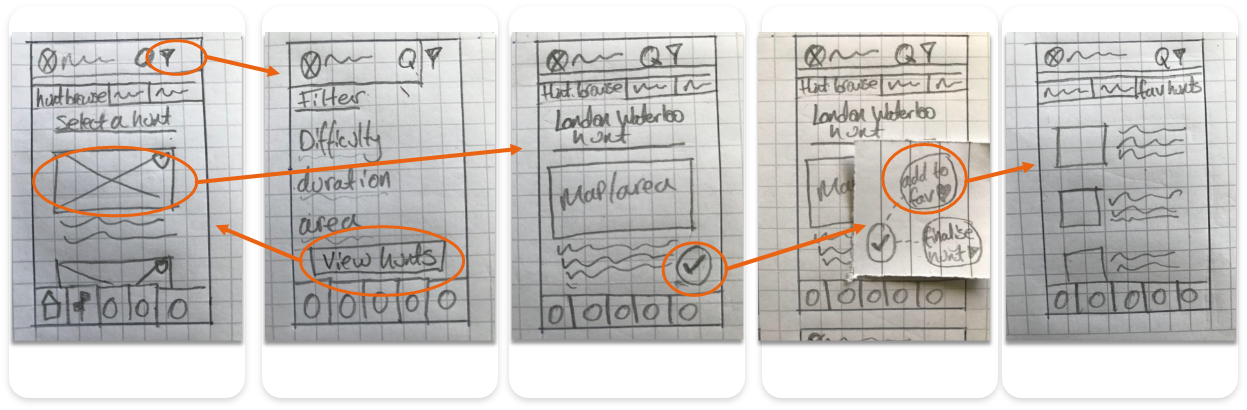 hunt browse
Select a hunt
Filter
Difficulty
duration
area
View hunts
Hunt browse
London Waterloo
hunt
Map/area
Hunt browse
London Waterloo
hunt
Ma
add to
fav
finalise
hunt
fav hunts